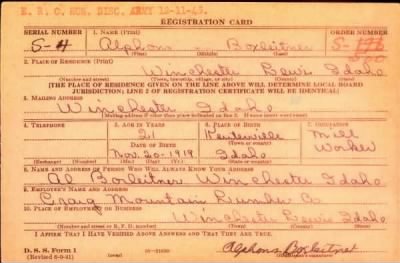 E. R. C. HON. DISC. ARMY 12-11-43.
REGISTRATION CARD
SERIAL NUMBER 1. NAME (Print) ORDER NUMBER
S-4 Alphons Boxleitner S-
(First) (Middle) (Last)
2. PLACE OF RESIDENCE (Print)
Winchester Lewis Idaho
(Number and street) (Town, township, village, or city) (County) (State)
[THE PLACE OF RESIDENCE GIVEN ON THE LINE ABOVE WILL DETERMINE LOCAL BOARD
JURISDICTION; LINE 2 OF REGISTRATION CERTIFICATE WILL BE IDENTICAL]
3. MAILING ADDRESS
Winchester Idaho
[Mailing address if other than place indicated on line 2. If same insert word same]
4. TELEPHONE 5. AGE IN YEARS 6. PLACE OF BIRTH 7. OCCUPATION
21 Keuterville Mill
DATE OF BIRTH Worker
Nov. 20-1919 Idaho
(Exchange) (Number) (Mo.) (Day) (Yr.) (State or country)
8. NAME AND ADDRESS OF PERSON WHO WILL ALWAYS KNOW YOUR ADDRESS
Boxleitner Winchester Idaho
9. EMPLOYER'S NAME AND ADDRESS
Craig Mountain Lumber Co
10. PLACE OF EMPLOYMENT OR BUSINESS
Winchester Lewis Idaho
(Number and street or R. F. D. number) (Town) (County) (State)
I AFFIRM THAT I HAVE VERIFIED ABOVE ANSWERS AND THAT THEY ARE TRUE.
D. S. S. Form 1
(Revised 6-9-41) Alphons Boxleitner